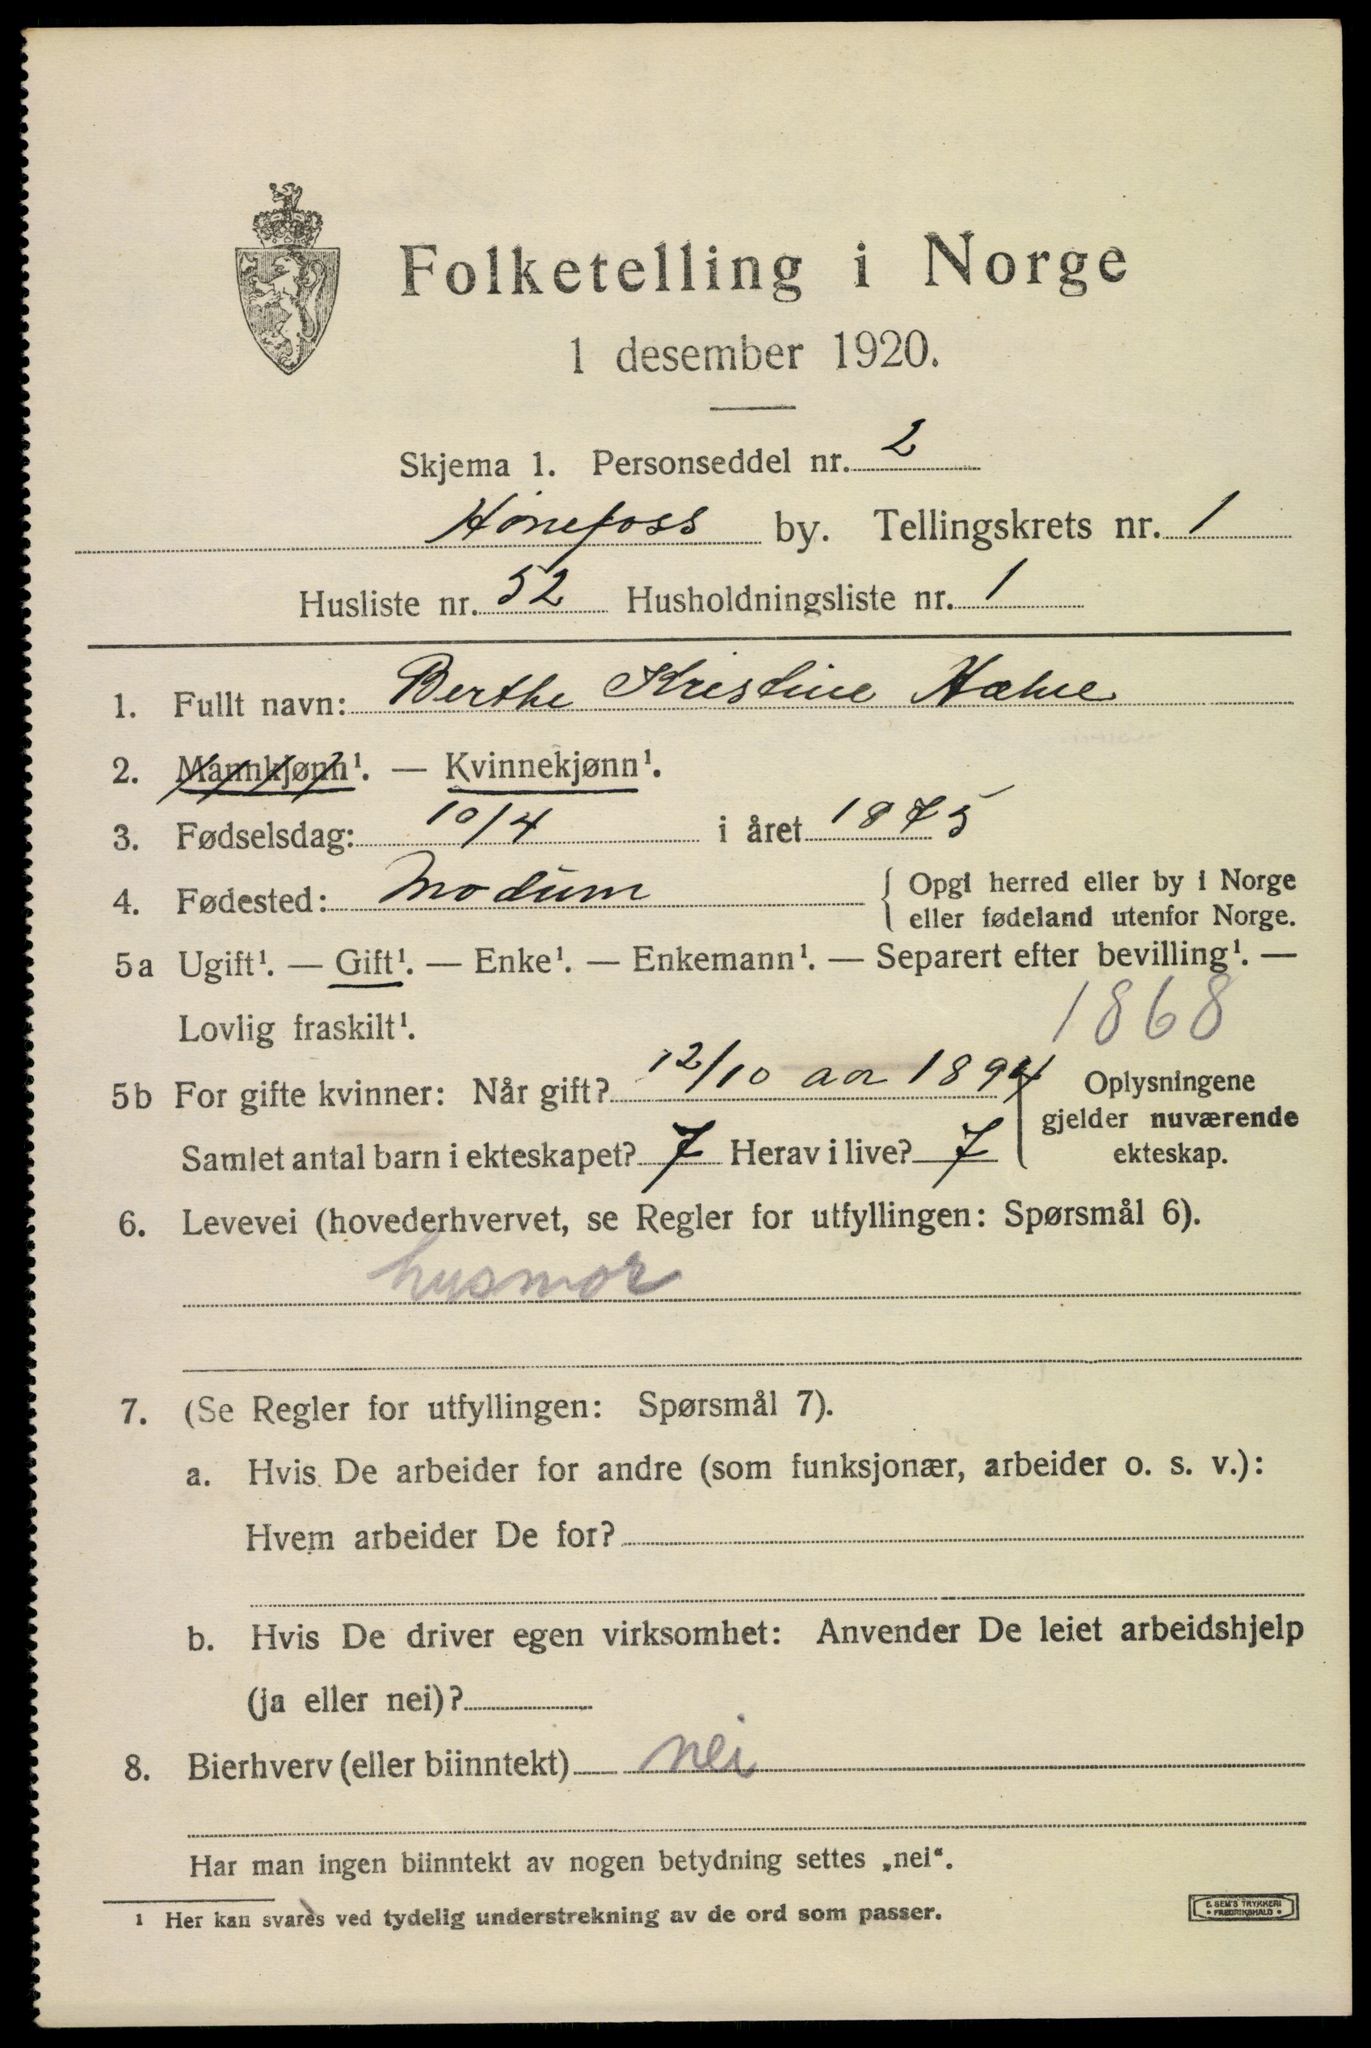 Folketelling i Norge
1 desember 1920.
Skjema 1. Personseddel nr. 2
Hønefoss by. Tellingskrets nr. 1
Husliste nr. 52 Husholdningsliste nr. 1
1. Fullt navn: Berthe Kristine
2. Mannkjønn¹. — Kvinnekjønn¹.
3. Fødselsdag: 10/4 i året 1875
4. Fødested: Modum { Opgi herred eller by i Norge
eller fødeland utenfor Norge.
5a Ugift¹. — Gift¹. — Enke¹. — Enkemann¹. — Separert efter bevilling¹. —
Lovlig fraskilt¹. 1868
5b For gifte kvinner: Når gift? 12/10 aar 1894 Oplysningene
gjelder nuværende
Samlet antal barn i ekteskapet? 7 Herav i live? 7 ekteskap.
6. Levevei (hovederhvervet, se Regler for utfyllingen: Spørsmål 6).
husmor
7. (Se Regler for utfyllingen: Spørsmål 7).
a. Hvis De arbeider for andre (som funksjonær, arbeider o. s. v.):
Hvem arbeider De for?
b. Hvis De driver egen virksomhet: Anvender De leiet arbeidshjelp
(ja eller nei)?
8. Bierhverv (eller biinntekt) nei
Har man ingen biinntekt av nogen betydning settes „nei“.
¹ Her kan svares ved tydelig understrekning av de ord som passer.
E. SEM'S TRYKKERI
• FREDRIKSHALD •